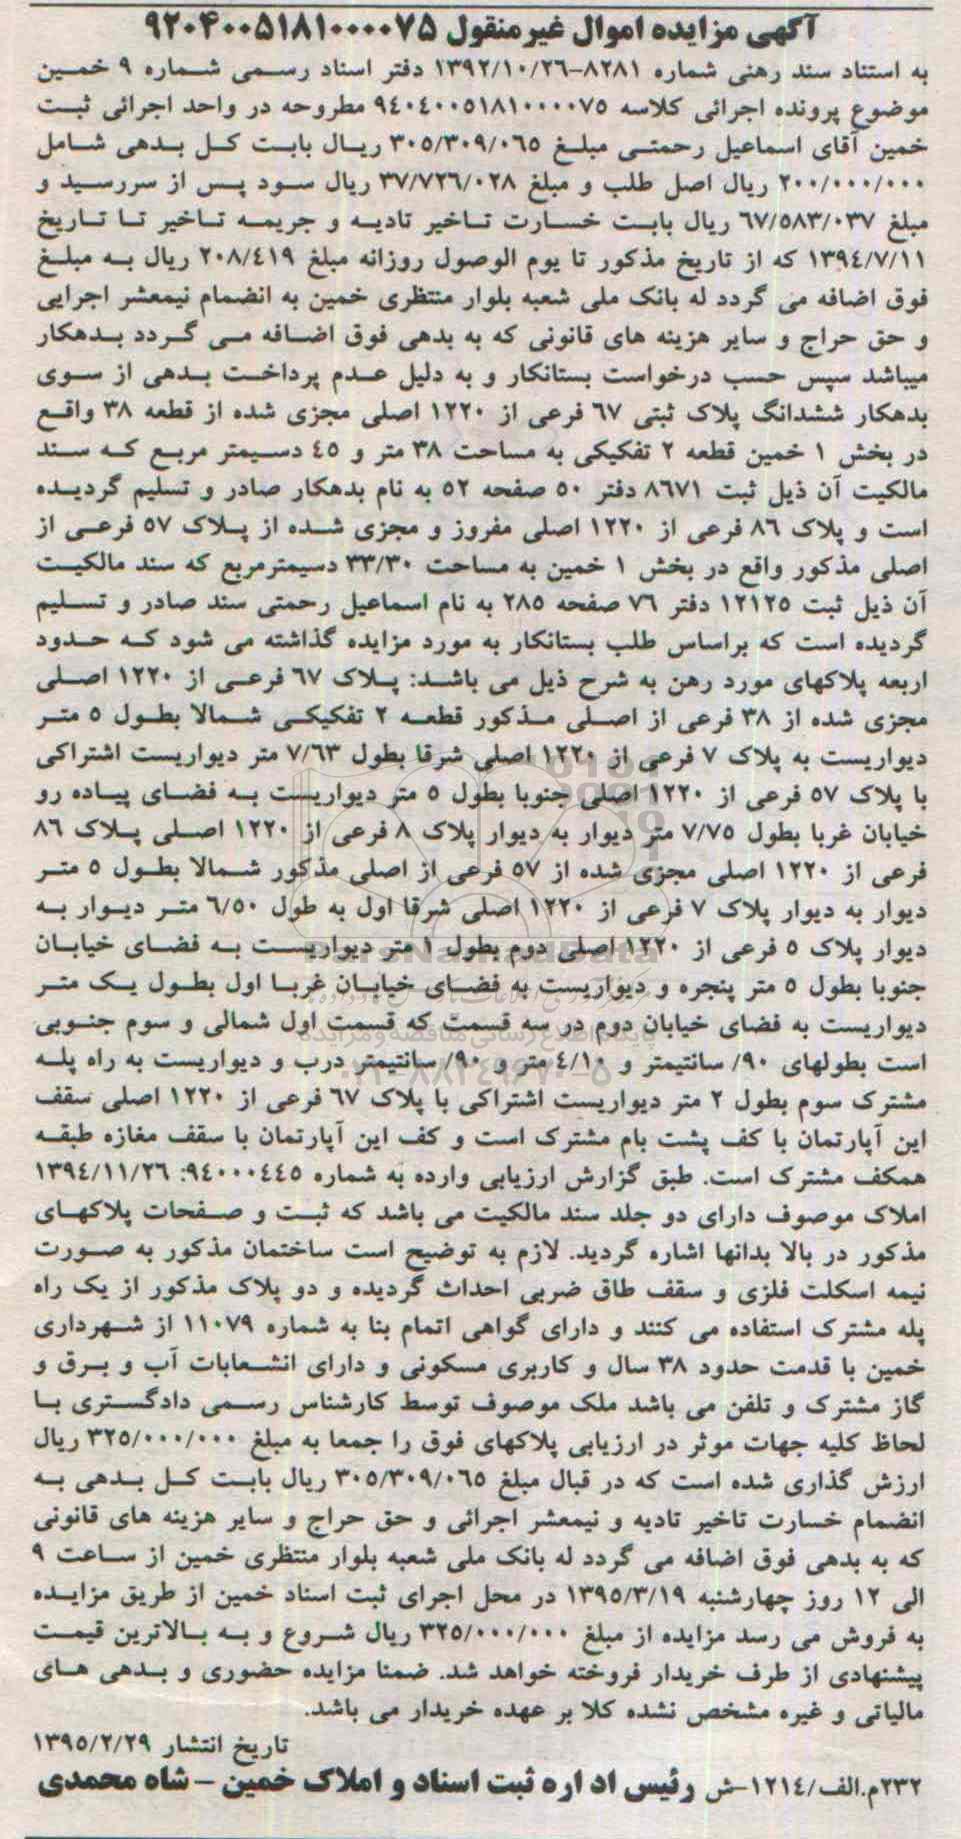 آگهی مزایده اموال غیرمنقول ۹۲۰۴۰۰۵۱۸۱۰۰۰۰۷۵
به استناد سند رهنی شماره ۸۲۸۱-۱۳۹۲/۱۰/۲۶ دفتر اسناد رسمی شماره ۹ خمین
موضوع پرونده اجرائی کلاسه ۹۴۰۴۰۰۵۱۸۱۰۰۰۰۷۵ مطروحه در واحد اجرائی ثبت
خمین آقای اسماعیل رحمتی مبلغ ۳۰۵/۳۰۹/۰۶۵ ریال بابت کل بدهی شامل
۲۰۰/۰۰۰/۰۰۰ ریال اصل طلب و مبلغ ۳۷/۷۲۶/۰۲۸ ریال سود پس از سررسید و
مبلغ ۶۷/۵۸۳/۰۳۷ ریال بابت خسارت تاخیر تادیه و جریمه تاخیر تا تاریخ
۱۳۹۴/۷/۱۱ که از تاریخ مذکور تا یوم الوصول روزانه مبلغ ۲۰۸/۴۱۹ ریال به مبلغ
فوق اضافه می گردد له بانک ملی شعبه بلوار منتظری خمین به انضمام نیمعشر اجرایی
و حق حراج و سایر هزینه های قانونی که به بدهی فوق اضافه می گردد بدهکار
میباشد سپس حسب درخواست بستانکار و به دلیل عدم پرداخت بدهی از سوی
بدهکار ششدانگ پلاک ثبتی ۶۷ فرعی از ۱۲۲۰ اصلی مجزی شده از قطعه ۳۸ واقع
در بخش ۱ خمین قطعه ۲ تفکیکی به مساحت ۳۸ متر و ۴۵ دسیمتر مربع که سند
مالکیت آن ذیل ثبت ۸۶۷۱ دفتر ۵۰ صفحه ۵۲ به نام بدهکار صادر و تسلیم گردیده
است و پلاک ۸۶ فرعی از ۱۲۲۰ اصلی مفروز و مجزی شده از پلاک ۵۷ فرعی از
اصلی مذکور واقع در بخش ۱ خمین به مساحت ۳۳/۳۰ دسیمترمربع که سند مالکیت
آن ذیل ثبت ۱۲۱۲۵ دفتر ۷۶ صفحه ۲۸۵ به نام اسماعیل رحمتی سند صادر و تسلیم
گردیده است که براساس طلب بستانکار به مورد مزایده گذاشته می شود که حدود
اربعه پلاکهای مورد رهن به شرح ذیل می باشد: پلاک ۶۷ فرعی از ۱۲۲۰ اصلی
مجزی شده از ۳۸ فرعی از اصلی مذکور قطعه ۲ تفکیکی شمالا بطول ۵ متر
دیواریست به پلاک ۷ فرعی از ۱۲۲۰ اصلی شرقا بطول ۷/۶۳ متر دیواریست اشتراکی
با پلاک ۵۷ فرعی از ۱۲۲۰ اصلی جنوبا بطول ۵ متر دیواریست به فضای پیاده رو
خیابان غربا بطول ۷/۷۵ متر دیوار به دیوار پلاک ۸ فرعی از ۱۲۲۰ اصلی پلاک ۸۶
فرعی از ۱۲۲۰ اصلی مجزی شده از ۵۷ فرعی از اصلی مذکور شمالا بطول ۵ متر
دیوار به دیوار پلاک ۷ فرعی از ۱۲۲۰ اصلی شرقا اول به طول ۶/۵۰ متر دیوار به
دیوار پلاک ۵ فرعی از ۱۲۲۰ اصلی دوم بطول ۱ متر دیواریست به فضای خیابان
جنوبا بطول ۵ متر پنجره و دیواریست به فضای خیابان غربا اول بطول یک متر
دیواریست به فضای خیابان دوم در سه قسمت که قسمت اول شمالی و سوم جنوبی
است بطولهای ۹۰/ سانتیمتر و ۴/۱۰ متر و ۹۰/ سانتیمتر درب و دیواریست به راه پله
مشترک سوم بطول ۲ متر دیواریست اشتراکی با پلاک ۶۷ فرعی از ۱۲۲۰ اصلی سقف
این آپارتمان با کف پشت بام مشترک است و کف این آپارتمان با سقف مغازه طبقه
همکف مشترک است. طبق گزارش ارزیابی وارده به شماره ۹۴۰۰۰۴۴۵: ۱۳۹۴/۱۱/۲۶
املاک موصوف دارای دو جلد سند مالکیت می باشد که ثبت و صفحات پلاکهای
مذکور در بالا بدانها اشاره گردید. لازم به توضیح است ساختمان مذکور به صورت
نیمه اسکلت فلزی و سقف طاق ضربی احداث گردیده و دو پلاک مذکور از یک راه
پله مشترک استفاده می کنند و دارای گواهی اتمام بنا به شماره ۱۱۰۷۹ از شهرداری
خمین با قدمت حدود ۳۸ سال و کاربری مسکونی و دارای انشعابات آب و برق و
گاز مشترک و تلفن می باشد ملک موصوف توسط کارشناس رسمی دادگستری با
لحاظ کلیه جهات موثر در ارزیابی پلاکهای فوق را جمعا به مبلغ ۳۲۵/۰۰۰/۰۰۰ ریال
ارزش گذاری شده است که در قبال مبلغ ۳۰۵/۳۰۹/۰۶۵ ریال بابت کل بدهی به
انضمام خسارت تاخیر تادیه و نیمعشر اجرائی و حق حراج و سایر هزینه های قانونی
که به بدهی فوق اضافه می گردد له بانک ملی شعبه بلوار منتظری خمین از ساعت ۹
الی ۱۲ روز چهارشنبه ۱۳۹۵/۳/۱۹ در محل اجرای ثبت اسناد خمین از طریق مزایده
به فروش می رسد مزایده از مبلغ ۳۲۵/۰۰۰/۰۰۰ ریال شروع و به بالاترین قیمت
پیشنهادی از طرف خریدار فروخته خواهد شد. ضمنا مزایده حضوری و بدهی های
مالیاتی و غیره مشخص نشده کلا بر عهده خریدار می باشد.
تاریخ انتشار ۱۳۹۵/۲/۲۹
۲۳۲م.الف/۱۲۱۴-ش رئیس اداره ثبت اسناد و املاک خمین - شاه محمدی